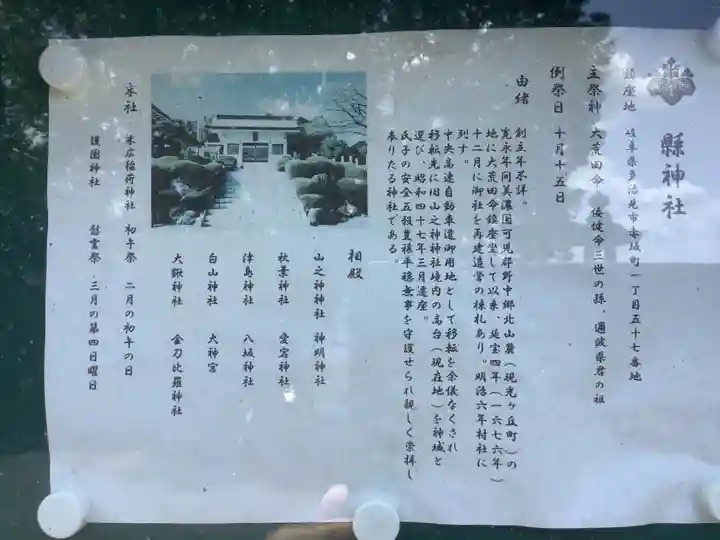 縣神社
鎮座地 岐阜県多治見市赤坂町一丁目五十七番地
主祭神 大荒田命 倭健命三世の孫、邇波県君の祖
例祭日 十月十五日
由緒 創立年不詳。
寛永年間美濃国可児郡野中郷北山麓(現光ヶ丘町)の
地に大荒田命鎮座坐して以来、延宝四年(一六七六年)
十二月に御社を再建造営の棟札あり。明治六年村社に
列す。
中央高速自動車道御用地として移転を余儀なくされ
移転先に旧山之神神社境内の高台(現在地)を神域と
選び、昭和四十七年三月遷座。
氏子の安全五穀豊穣平穏無事を守護せられ親しく崇拝し
奉りたる神社である。
相殿
山之神神社 神明神社
秋葉神社 愛宕神社
津島神社 八坂神社
白山神社 大神宮
大鍬神社 金刀比羅神社
末社 末広稲荷神社 初午祭 二月の初午の日
護国神社 慰霊祭 三月の第四日曜日